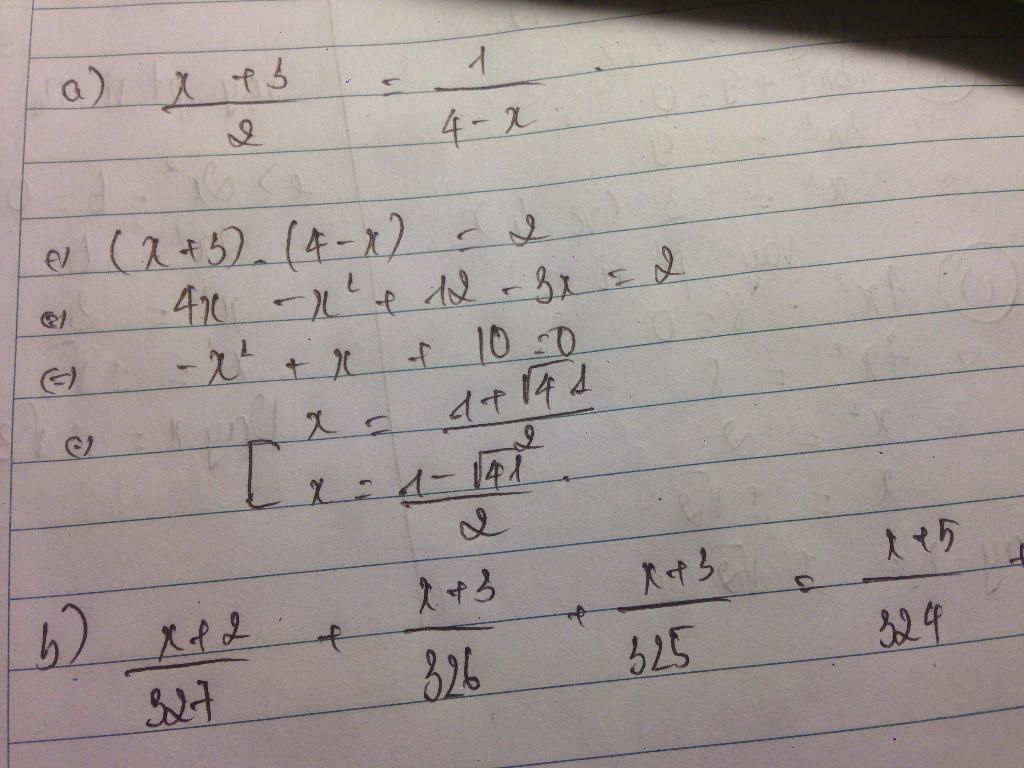 a) (x + 3)/2 = 1/(4 - x)
⇔ (x + 3) . (4 - x) = 2
⇔ 4x - x² + 12 - 3x = 2
⇔ - x² + x + 10 = 0
⇔ [ x = (1 + √41)/2
x = (1 - √41)/2 .
b) (x + 2)/327 + (x + 3)/326 + (x + 3)/325 = (x + 5)/324 +